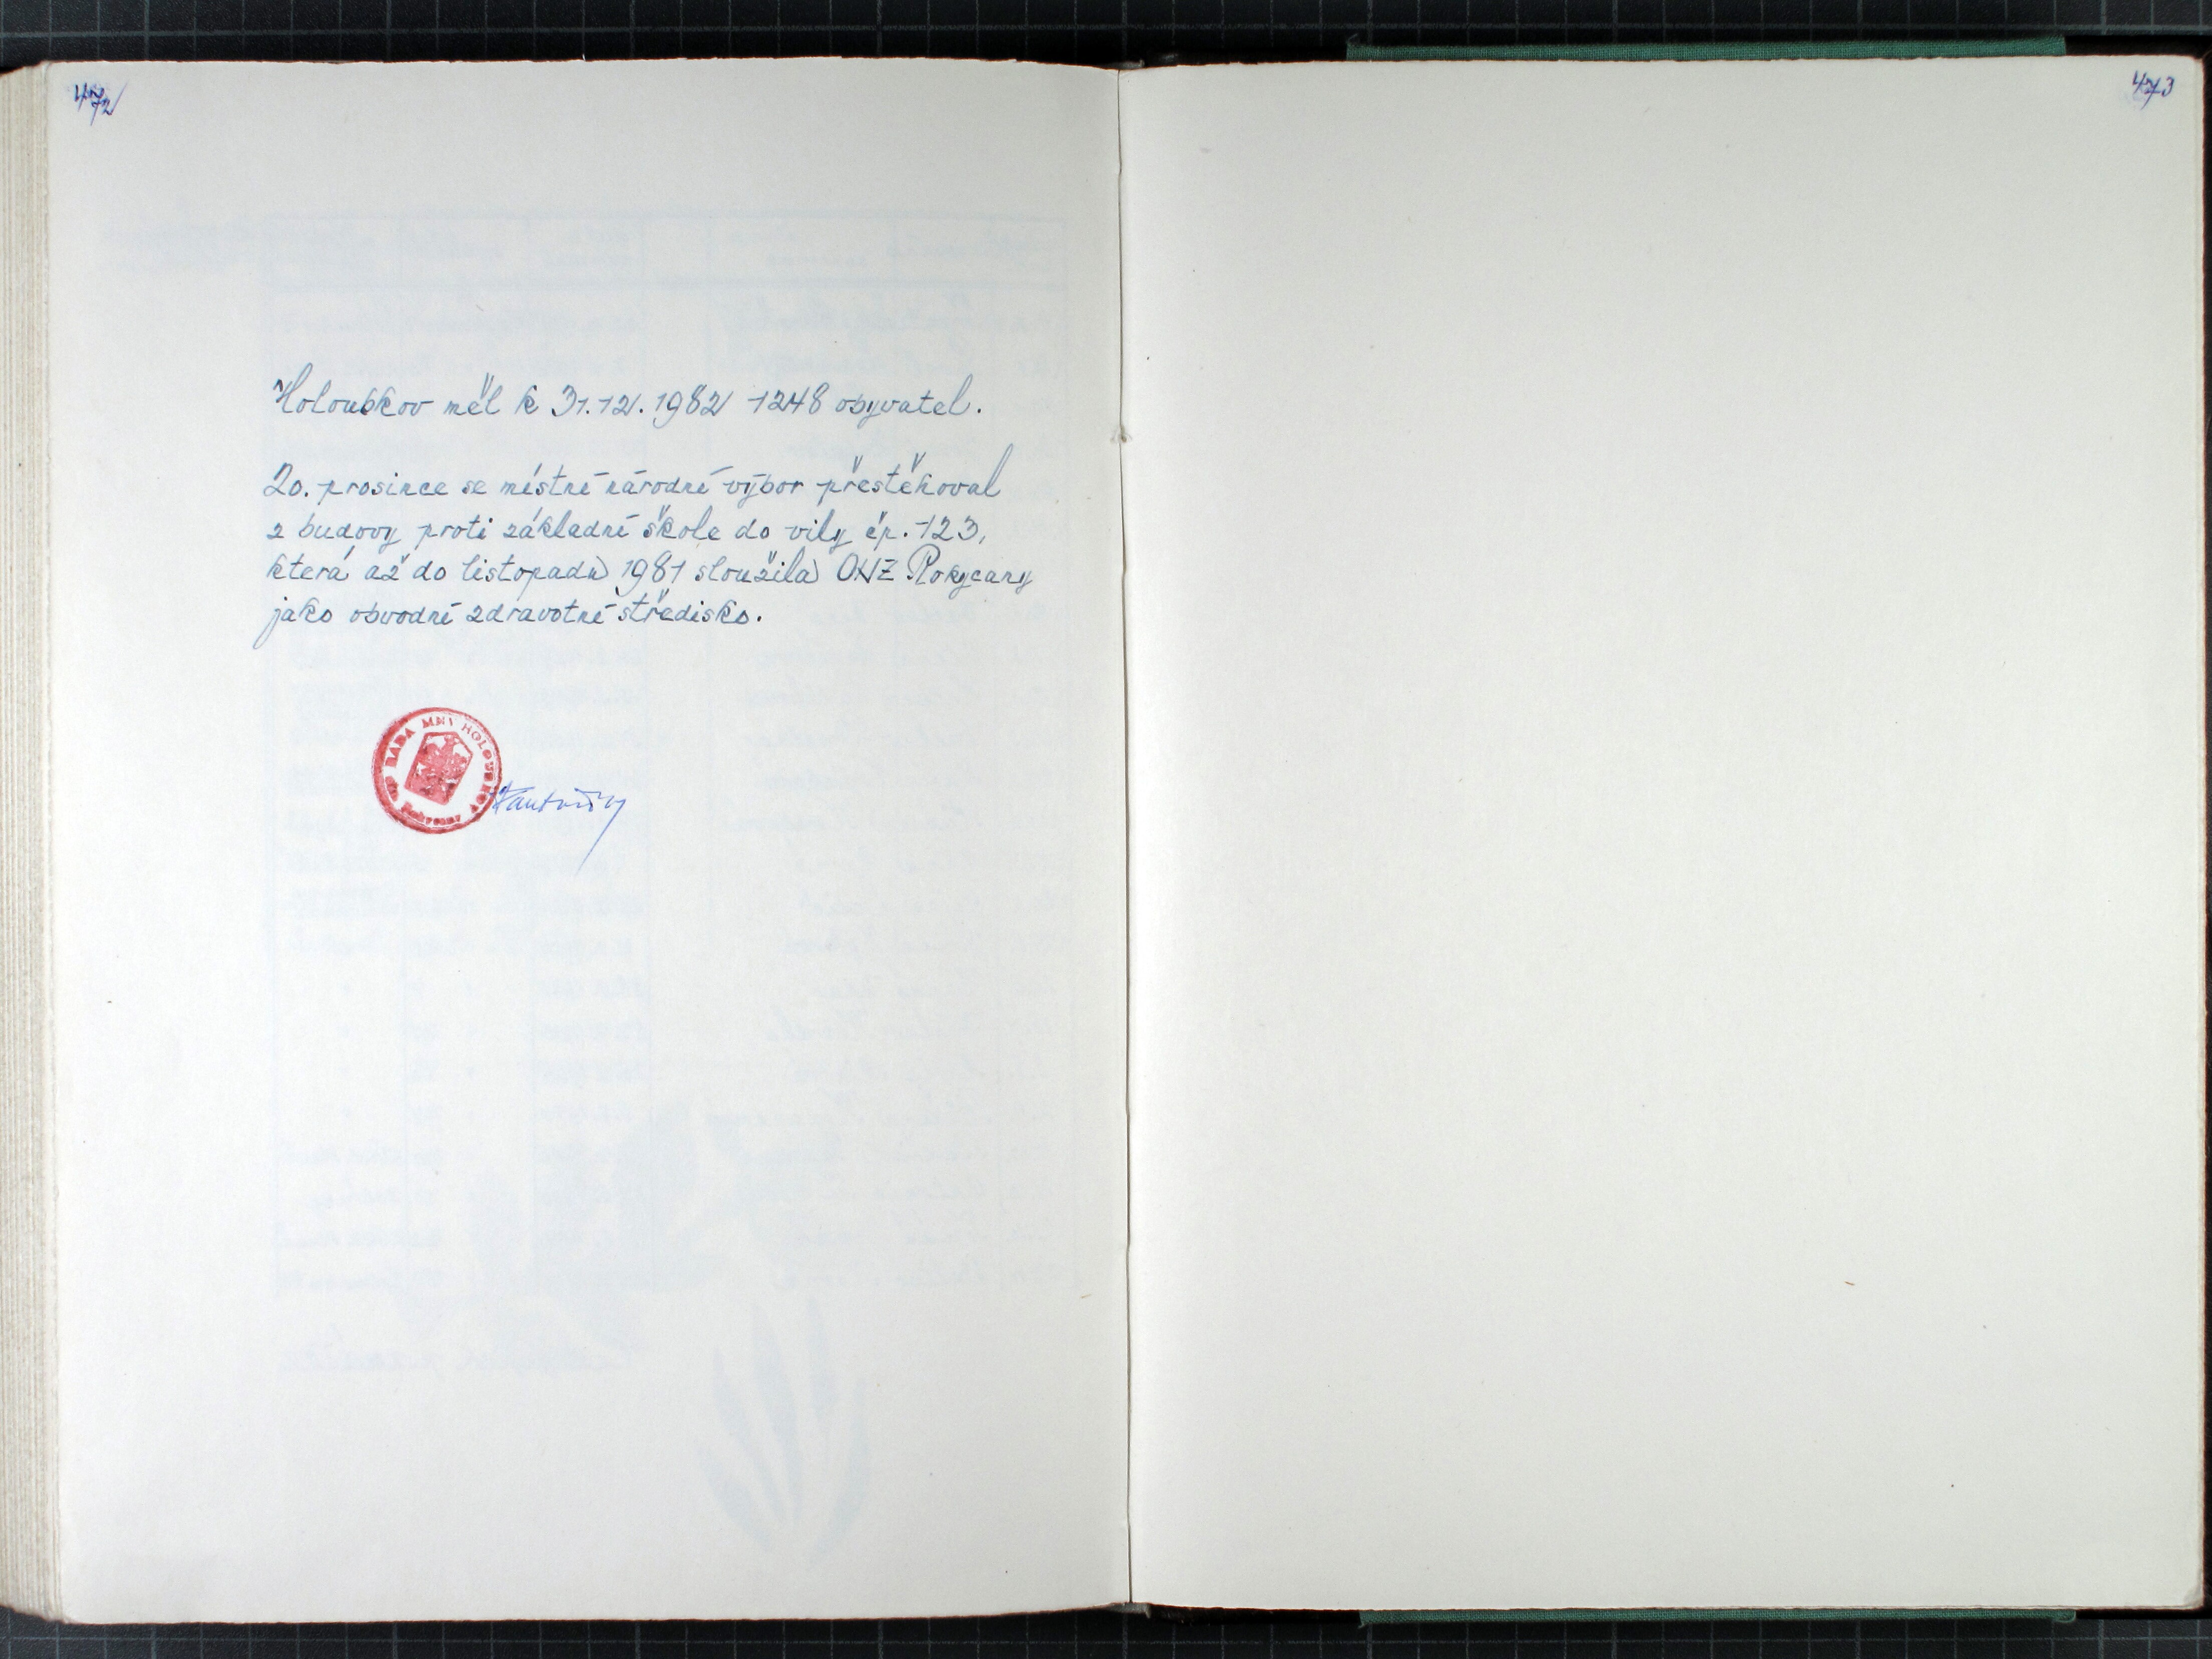 472
Holoubkov měl k 31.12.1982 1248 obyvatel.
20. prosince se místní národní výbor přestěhoval
z budovy proti základní škole do vily čp. 123,
která až do listopadu 1981 sloužila OÚNZ Rokycany
jako obvodní zdravotní středisko.
RADA MNV HOLOUBKOV
473